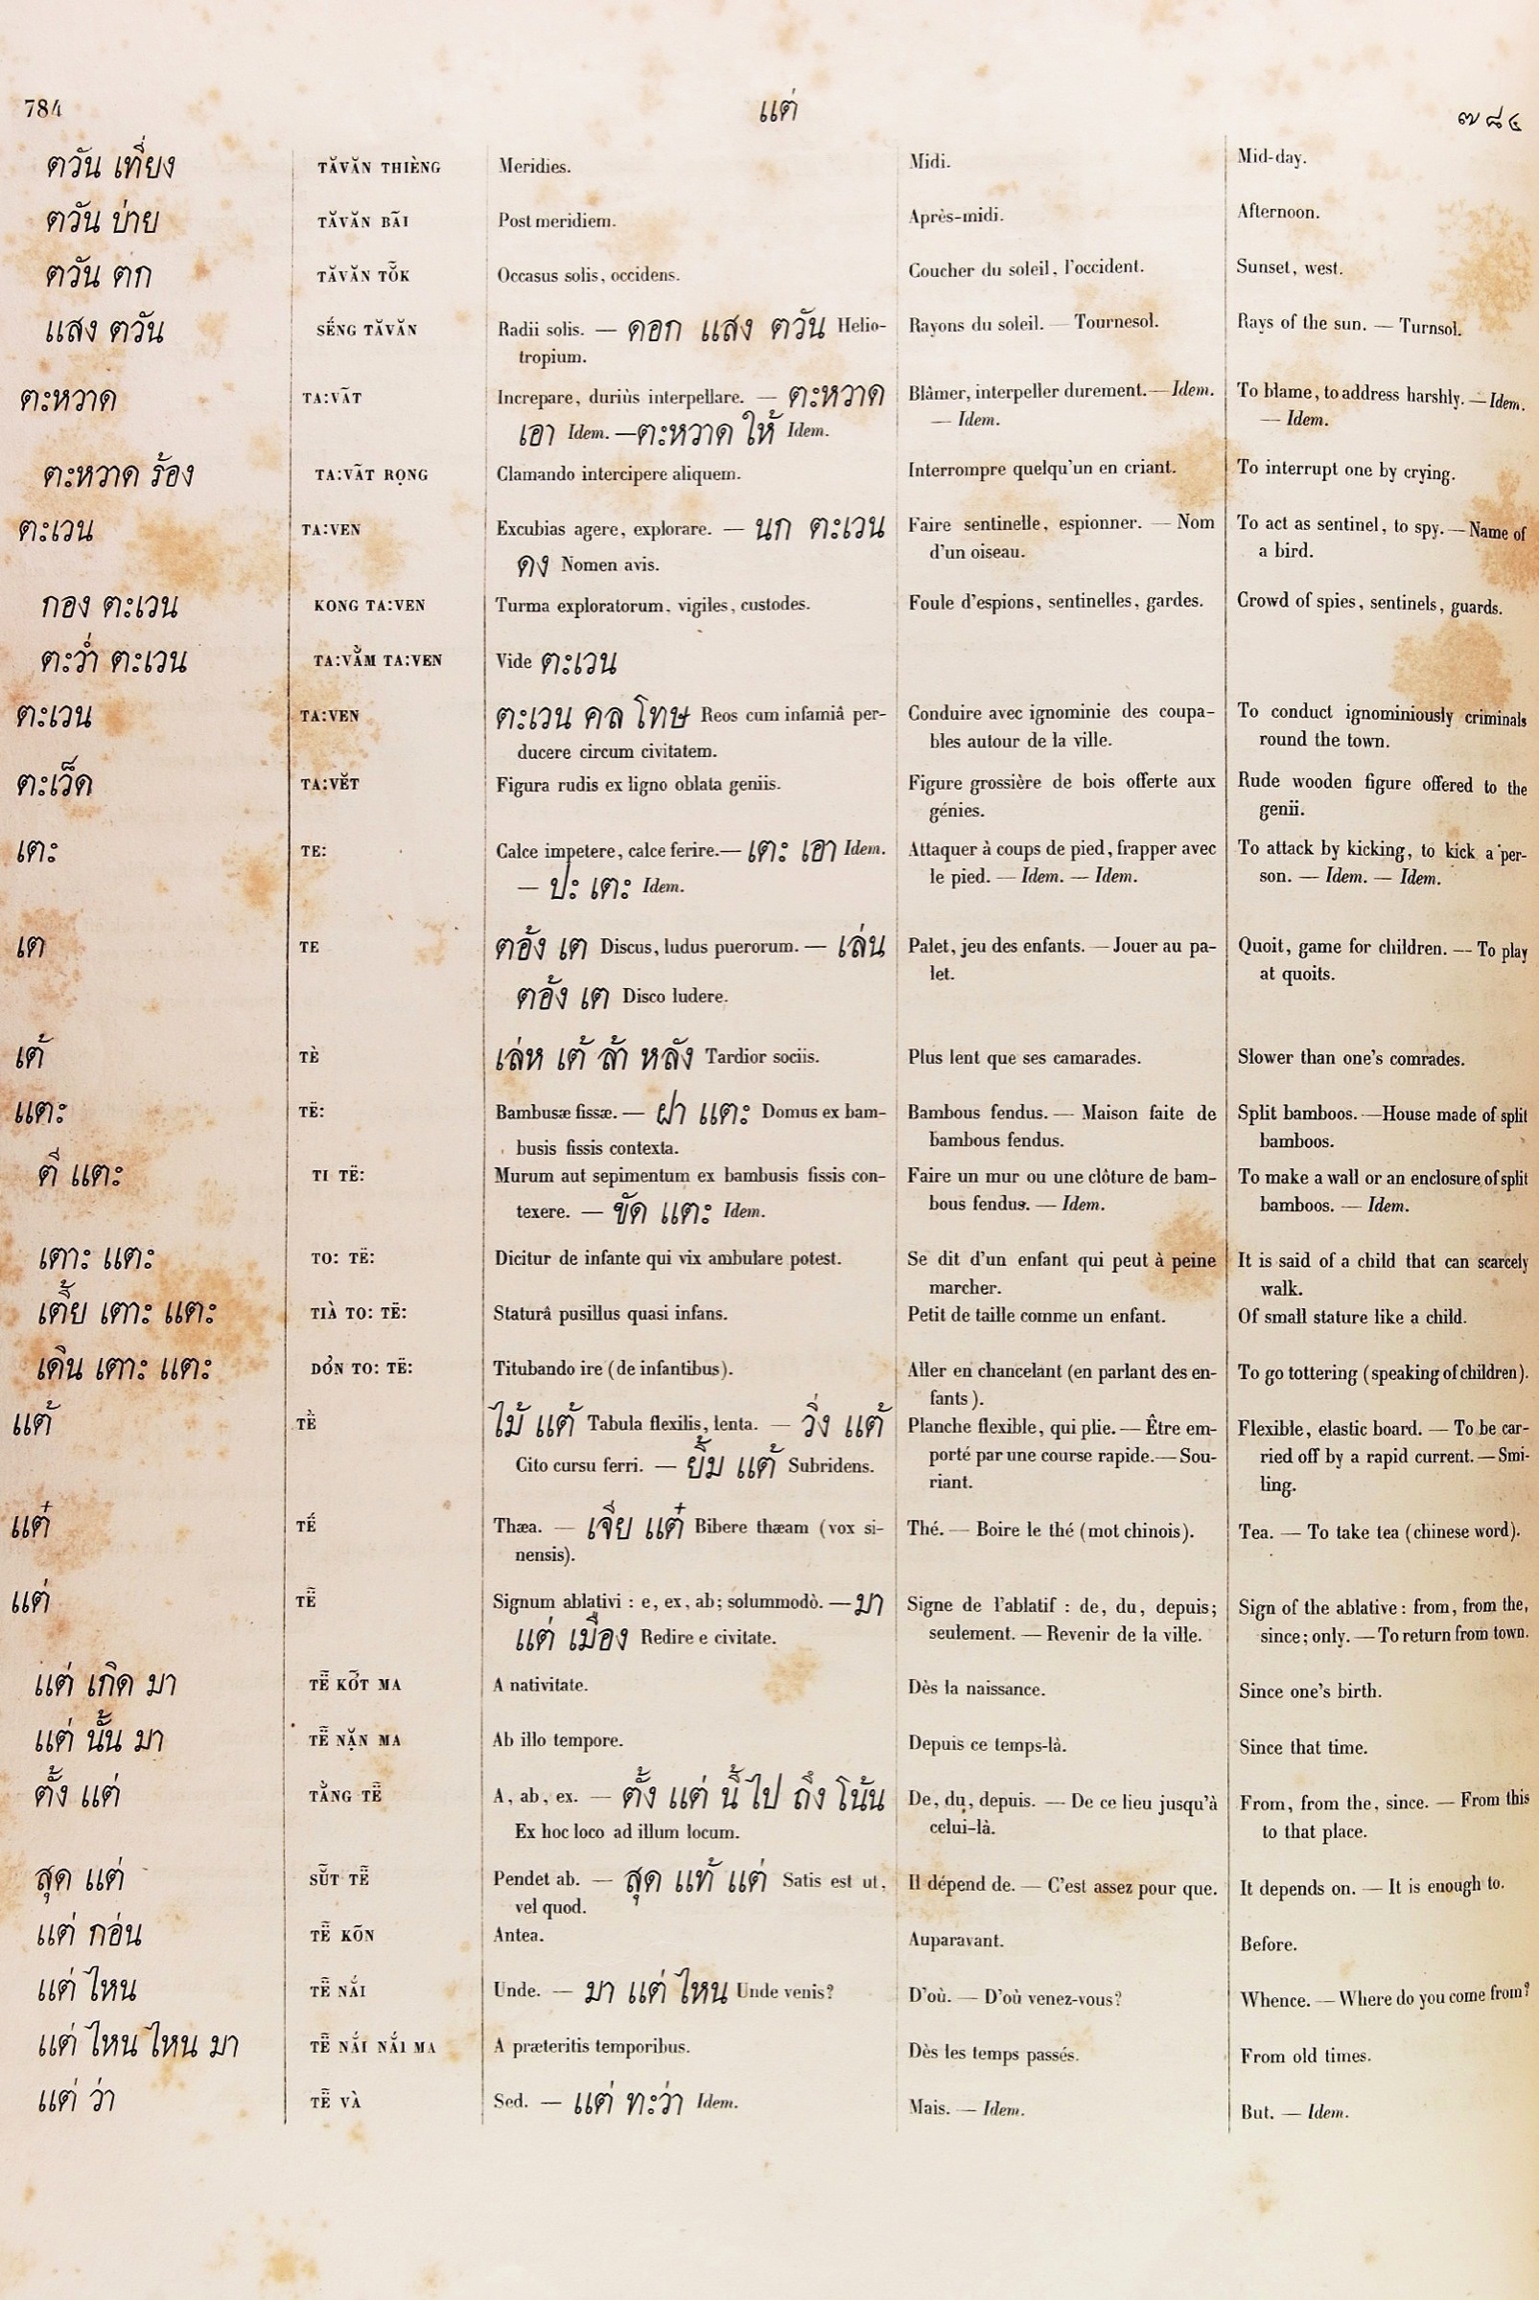 784 แต่ ๗๘๔
ตวัน เที่ยง TĂVĂN THIÈNG Meridies. Midi. Mid-day.
ตวัน บ่าย TĂVĂN BÃI Post meridiem. Après-midi. Afternoon.
ตวัน ตก TĂVĂN TŎ̃K Occasus solis, occidens. Coucher du soleil, l'occident. Sunset, west.
แสง ตวัน SẼ́NG TĂVĂN Radii solis. — ดอก แสง ตวัน Helio- Rayons du soleil. — Tournesol. Rays of the sun. — Turnsol.
tropium.
ตะหวาด TA:VÃT Increpare, duriùs interpellare. — ตะหวาด Blâmer, interpeller durement. — Idem. To blame, to address harshly. — Idem.
เอา Idem. — ตะหวาด ให้ Idem. — Idem. — Idem.
ตะหวาด ร้อง TA:VÃT RỌNG Clamando intercipere aliquem. Interrompre quelqu'un en criant. To interrupt one by crying.
ตะเวน TA:VEN Excubias agere, explorare. — นก ตะเวน Faire sentinelle, espionner. — Nom To act as sentinel, to spy. — Name of
ดง Nomen avis. d'un oiseau. a bird.
กอง ตะเวน KONG TA:VEN Turma exploratorum, vigiles, custodes. Foule d'espions, sentinelles, gardes. Crowd of spies, sentinels, guards.
ตะว่ำ ตะเวน TA:VẰM TA:VEN Vide ตะเวน
ตะเวน TA:VEN ตะเวน คล โทษ Reos cum infamiâ per- Conduire avec ignominie des coupa- To conduct ignominiously criminals
ducere circum civitatem. bles autour de la ville. round the town.
ตะเว็ด TA:VĔ̃T Figura rudis ex ligno oblata geniis. Figure grossière de bois offerte aux Rude wooden figure offered to the
génies. genii.
เตะ TE: Calce impetere, calce ferire. — เตะ เอา Idem. Attaquer à coups de pied, frapper avec To attack by kicking, to kick a per-
— ปะ เตะ Idem. le pied. — Idem. — Idem. son. — Idem. — Idem.
เต TE ตอั้ง เต Discus, ludus puerorum. — เล่น Palet, jeu des enfants. — Jouer au pa- Quoit, game for children. — To play
ตอั้ง เต Disco ludere. let. at quoits.
เต้ TÈ เล่ห เต้ ล้า หลัง Tardior sociis. Plus lent que ses camarades. Slower than one's comrades.
แตะ TË: Bambusæ fissæ. — ฝา แตะ Domus ex bam- Bambous fendus. — Maison faite de Split bamboos. — House made of split
busis fissis contexta. bambous fendus. bamboos.
ตี แตะ TI TË: Murum aut sepimentum ex bambusis fissis con- Faire un mur ou une clôture de bam- To make a wall or an enclosure of split
texere. — ขัด แตะ Idem. bous fendus. — Idem. bamboos. — Idem.
เตาะ แตะ TO: TË: Dicitur de infante qui vix ambulare potest. Se dit d'un enfant qui peut à peine It is said of a child that can scarcely
marcher. walk.
เตี้ย เตาะ แตะ TIÀ TO: TË: Staturâ pusillus quasi infans. Petit de taille comme un enfant. Of small stature like a child.
เดิน เตาะ แตะ DỎN TO: TË: Titubando ire (de infantibus). Aller en chancelant (en parlant des en- To go tottering (speaking of children).
fants).
แต้ TË̀ ไม้ แต้ Tabula flexilis, lenta. — วิ่ง แต้ Planche flexible, qui plie. — Être em- Flexible, elastic board. — To be car-
Cito cursu ferri. — ยิ้ม แต้ Subridens. porté par une course rapide. — Sou- ried off by a rapid current. — Smi-
riant. ling.
แต๋ TË́ Thæa. — เจี๊ย แต๋ Bibere thæam (vox si- Thé. — Boire le thé (mot chinois). Tea. — To take tea (chinese word).
nensis).
แต่ TË̃ Signum ablativi : e, ex, ab; solummodò. — มา Signe de l'ablatif : de, du, depuis; Sign of the ablative : from, from the,
แต่ เมือง Redire e civitate. seulement. — Revenir de la ville. since; only. — To return from town.
แต่ เกิด มา TË̃ KỎ̃T MA A nativitate. Dès la naissance. Since one's birth.
แต่ นั้น มา TË̃ NẶN MA Ab illo tempore. Depuis ce temps-là. Since that time.
ตั้ง แต่ TẰNG TË̃ A, ab, ex. — ตั้ง แต่ นี้ ไป ถึง โน้น De, du, depuis. — De ce lieu jusqu'à From, from the, since. — From this
Ex hoc loco ad illum locum. celui-là. to that place.
สุด แต่ SŬ̃T TË̃ Pendet ab. — สุด แท้ แต่ Satis est ut, Il dépend de. — C'est assez pour que. It depends on. — It is enough to.
vel quod.
แต่ ก่อน TË̃ KÕN Antea. Auparavant. Before.
แต่ ไหน TË̃ NẮI Unde. — มา แต่ ไหน Unde venis? D'où. — D'où venez-vous? Whence. — Where do you come from?
แต่ ไหน ไหน มา TË̃ NẮI NẮI MA A præteritis temporibus. Dès les temps passés. From old times.
แต่ ว่า TË̃ VÀ Sed. — แต่ ทะว่า Idem. Mais. — Idem. But. — Idem.